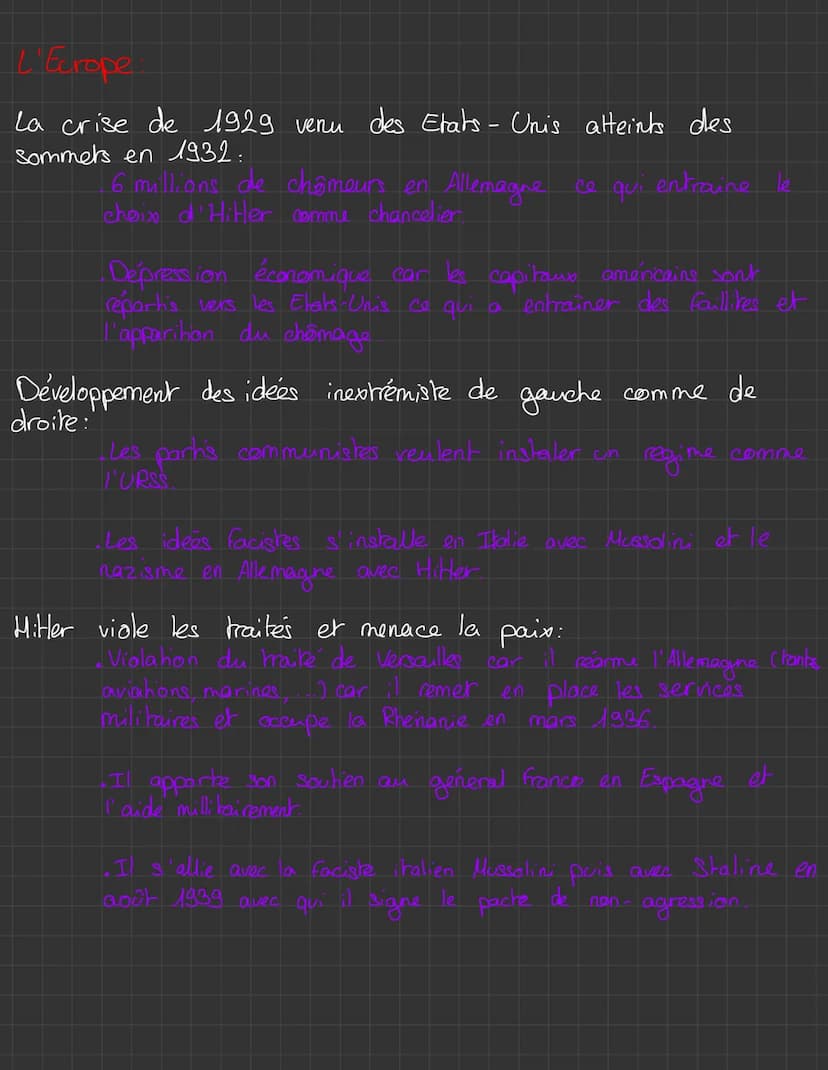 L'Europe:
La crise de 1929 venu des Etats-Unis atteints des
sommets en 1932:
. 6 millions de chômeurs en Allemagne ce qui entraine le
choix d'Hitler comme chancelier.
. Dépression économique car les capitaux américains sont
répartis vers les Etats-Unis ce qui a entraîner des faillites et
l'apparition du chômage
Développement des idées inextrémiste de gauche comme de
droite:
. Les partis communistes veulent instaler un régime comme
l'URSS.
. Les idées facistes s'installe en Italie avec Mussolini et le
nazisme en Allemagne avec Hitler.
Hitler viole les traités et menace la paix:
. Violation du traité de Versailles car il réarme l'Allemagne (tanks,
aviations, marines, ...) car il remet en place les services
militaires et occupe la Rhénanie en mars 1936.
. Il apporte son soutien au général Franco en Espagne et
l'aide millitairement.
. Il s'allie avec la faciste italien Mussolini puis avec Staline en
août 1939 avec qui il signe le pacte de non-agression.